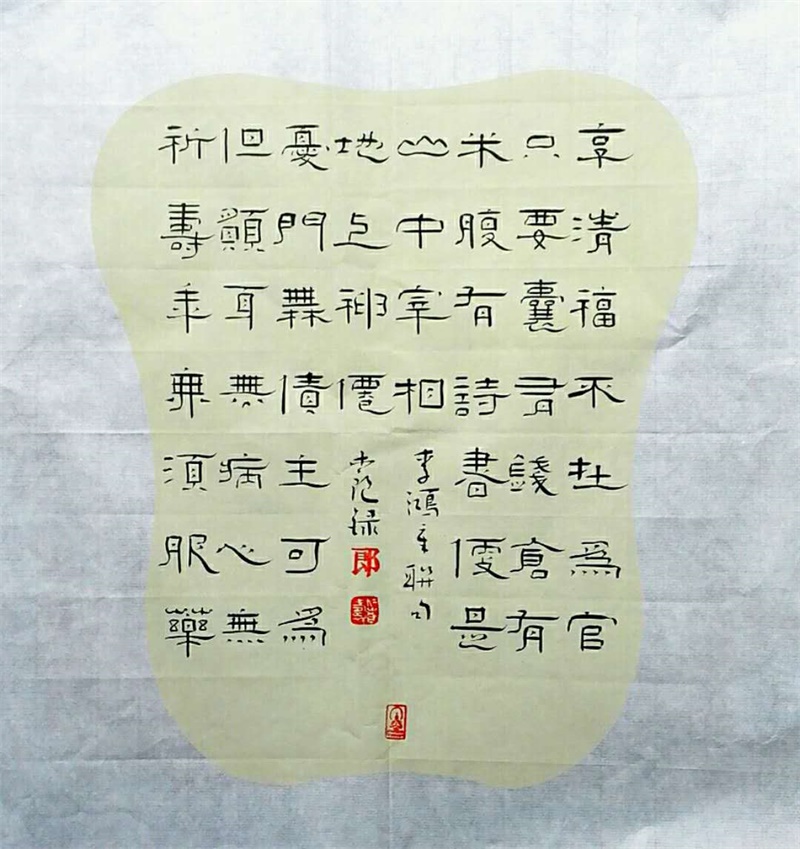 享清福不在為官
只要囊有錢倉有
米腹有詩書便是
山中宰相
李鴻章聯句
祈壽年無須服藥
但願耳無病心無
憂門無債主可為
地上神仙